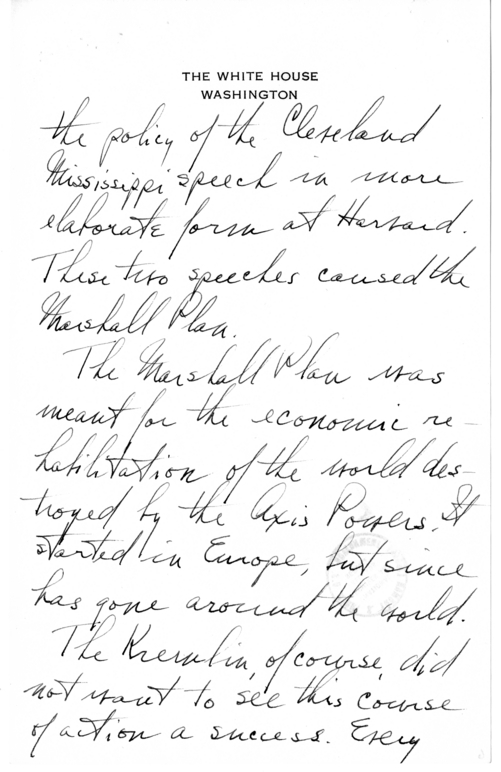 THE WHITE HOUSE
WASHINGTON
the policy of the Cleveland
Mississippi speech in more
elaborate form at Harvard.
These two speeches caused the
Marshall Plan.
The Marshall Plan was
meant for the economic re-
habilitation of the world des-
troyed by the Axis Powers. It
started in Europe, but since
has gone around the world.
The Kremlin, of course, did
not want to see this course
of action a success. Every